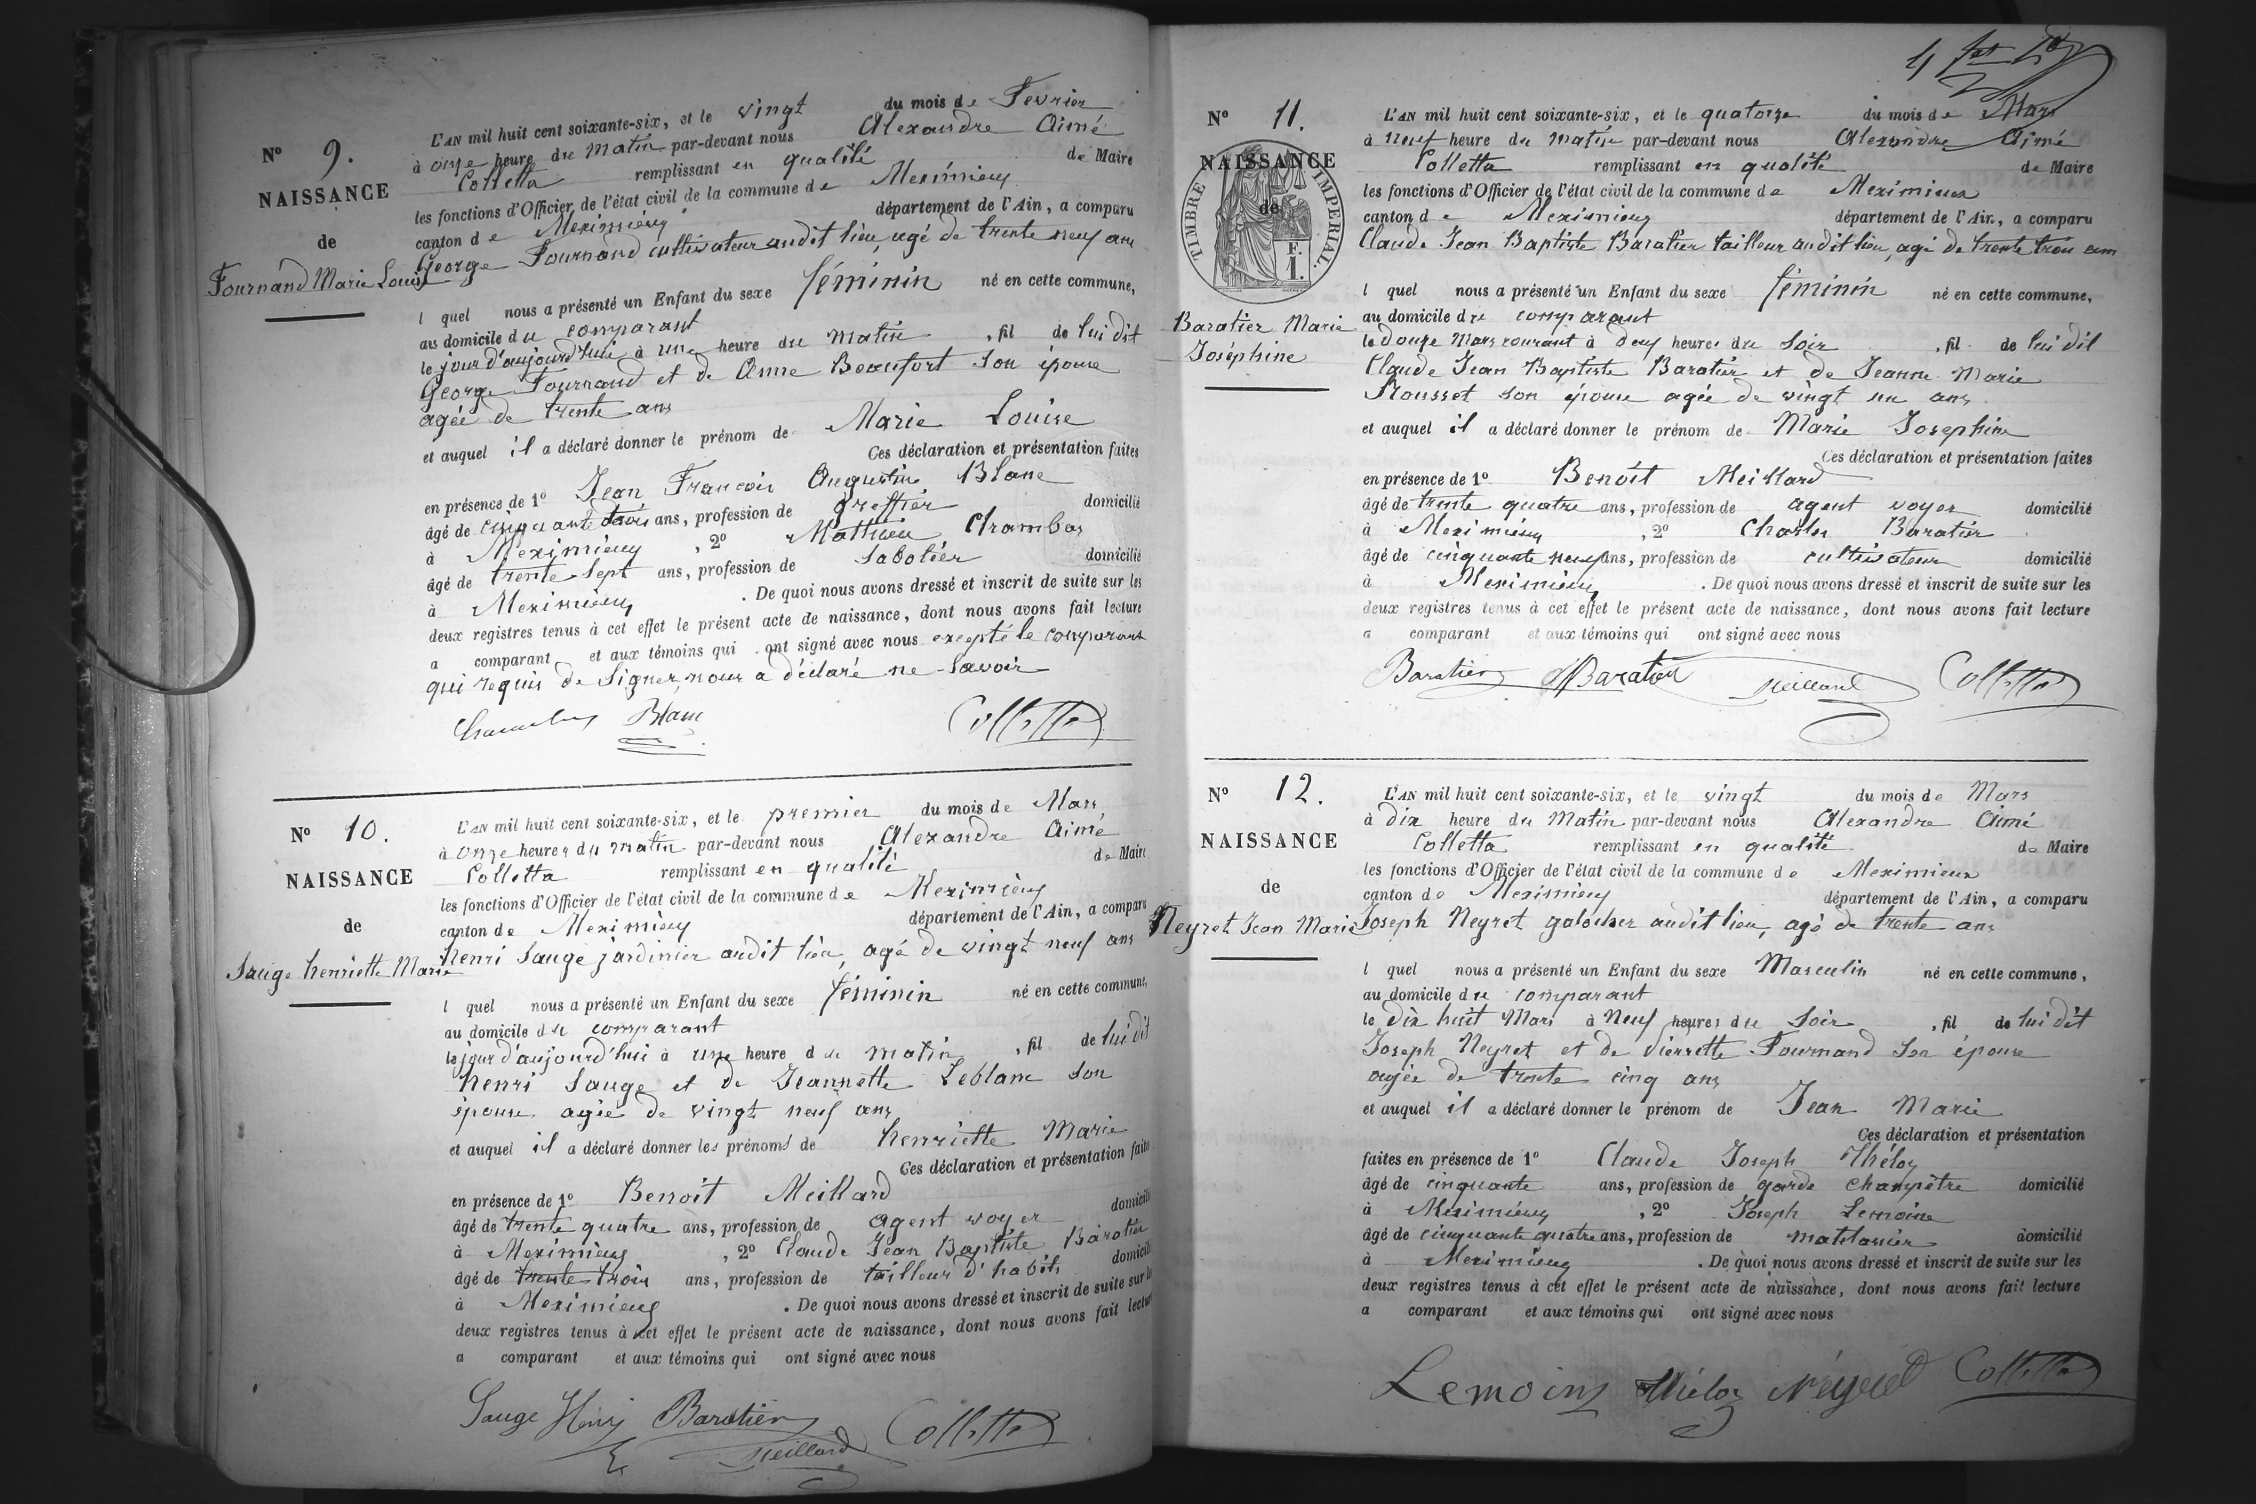 N° 9.
NAISSANCE
de
Fournand Marie Louise
L'AN mil huit cent soixante-six, et le vingt du mois de Fevrier
à onze heure du matin par-devant nous Alexandre Aimé
Colletta remplissant en qualité de Maire
les fonctions d'Officier de l'état civil de la commune de Meximieux
canton de Meximieux département de l'Ain, a comparu
George Fournand cultivateur audit lieu, agé de trente neuf ans
l quel nous a présenté un Enfant du sexe féminin né en cette commune,
au domicile du comparant
le jour d'aujourd'hui à une heure du matin, fil de lui dit
George Fournand et de Anne Beaufort son épouse
agée de trente ans
et auquel il a déclaré donner le prénom de Marie Louise
Ces déclaration et présentation faites
en présence de 1° Jean François Augustin Blanc
âgé de cinquante trois ans, profession de greffier domicilié
à Meximieux, 2° Mathieu Chambas
âgé de trente sept ans, profession de sabotier domicilié
à Meximieux. De quoi nous avons dressé et inscrit de suite sur les
deux registres tenus à cet effet le présent acte de naissance, dont nous avons fait lecture
a comparant et aux témoins qui ont signé avec nous excepté le comparant
qui requis de signer, nous a déclaré ne savoir
Blanc Colletta
N° 10.
NAISSANCE
de
Sauge henriette Marie
L'AN mil huit cent soixante-six, et le premier du mois de Mars
à onze heures du matin par-devant nous Alexandre Aimé
Colletta remplissant en qualité de Maire
les fonctions d'Officier de l'état civil de la commune de Meximieux
canton de Meximieux département de l'Ain, a comparu
henri Sauge jardinier audit lieu, agé de vingt neuf ans
l quel nous a présenté un Enfant du sexe féminin né en cette commune,
au domicile du comparant
le jour d'aujourd'hui à une heure du matin, fil de lui dit
henri Sauge et de Jeannette Leblanc son
épouse agée de vingt neuf ans
et auquel il a déclaré donner les prénoms de henriette Marie
Ces déclaration et présentation faites
en présence de 1° Benoit Meillard
âgé de trente quatre ans, profession de agent voyer domicilié
à Meximieux, 2° Claude Jean Baptiste Baratier
âgé de trente trois ans, profession de tailleur d'habits domicilié
à Meximieux. De quoi nous avons dressé et inscrit de suite sur les
deux registres tenus à cet effet le présent acte de naissance, dont nous avons fait lecture
a comparant et aux témoins qui ont signé avec nous
Sauge Henry Baratier Meillard Colletta
N° 11.
NAISSANCE
de
TIMBRE IMPERIAL.
F.
1.
Baratier Marie
Joséphine
L'AN mil huit cent soixante-six, et le quatorze du mois de Mars
à neuf heure du matin par-devant nous Alexandre Aimé
Colletta remplissant en qualité de Maire
les fonctions d'Officier de l'état civil de la commune de Meximieux
canton de Meximieux département de l'Ain, a comparu
Claude Jean Baptiste Baratier tailleur audit lieu, agé de trente trois ans
l quel nous a présenté un Enfant du sexe féminin né en cette commune,
au domicile du comparant
le douze Mars courant à deux heures du soir, fil de lui dit
Claude Jean Baptiste Baratier et de Jeanne Marie
Rousset son épouse agée de vingt un ans
et auquel il a déclaré donner le prénom de Marie Josephine
Ces déclaration et présentation faites
en présence de 1° Benoit Meillard
âgé de trente quatre ans, profession de agent voyer domicilié
à Meximieux, 2° Charles Baratier
âgé de cinquante neuf ans, profession de cultivateur domicilié
à Meximieux. De quoi nous avons dressé et inscrit de suite sur les
deux registres tenus à cet effet le présent acte de naissance, dont nous avons fait lecture
a comparant et aux témoins qui ont signé avec nous
Baratier Baratier Meillard Colletta
N° 12.
NAISSANCE
de
Neyret Jean Marie
L'AN mil huit cent soixante-six, et le vingt du mois de Mars
à dix heure du Matin par-devant nous Alexandre Aimé
Colletta remplissant en qualité de Maire
les fonctions d'Officier de l'état civil de la commune de Meximieux
canton de Meximieux département de l'Ain, a comparu
Joseph Neyret galocher audit lieu, agé de trente ans
l quel nous a présenté un Enfant du sexe Masculin né en cette commune,
au domicile du comparant
le dix huit Mars à Neuf heures du soir, fil de lui dit
Joseph Neyret et de Pierrette Fournand son épouse
agée de trente cinq ans
et auquel il a déclaré donner le prénom de Jean Marie
Ces déclaration et présentation
faites en présence de 1° Claude Joseph Théloz
âgé de cinquante ans, profession de garde champêtre domicilié
à Meximieux, 2° Joseph Lemoine
âgé de cinquante quatre ans, profession de matelassier domicilié
à Meximieux. De quoi nous avons dressé et inscrit de suite sur les
deux registres tenus à cet effet le présent acte de naissance, dont nous avons fait lecture
a comparant et aux témoins qui ont signé avec nous
Lemoine Théloz Néyret Colletta